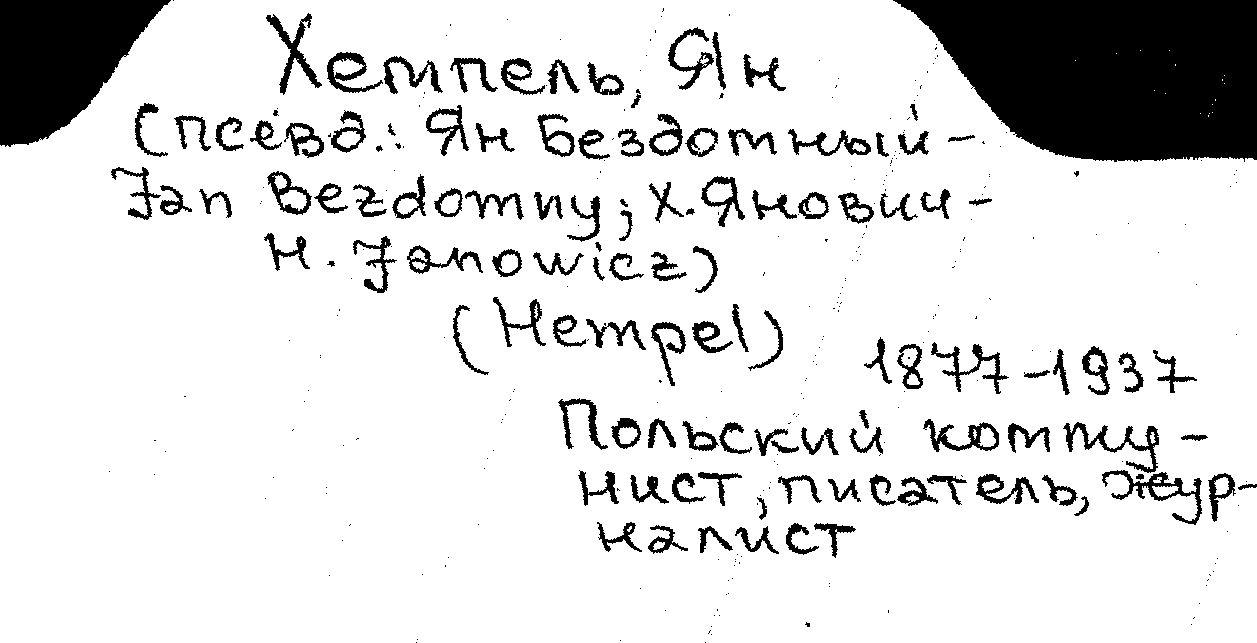 Хемпель, Ян
(псевд.: Ян Бездомный -
Jan Bezdomny; Х. Янович -
H. Janowicz)
(Hempel)
1877-1937
Польский комму-
нист, писатель, жур-
налист